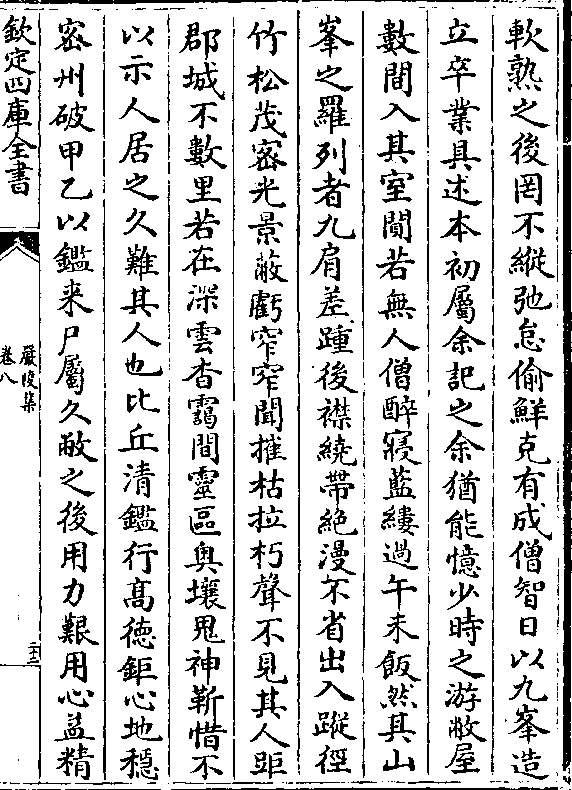 軟熟之後罔不縱弛怠偷鮮克有成僧智日以九峯造
立卒業具述本初屬余記之余猶能憶少時之游敝屋
數間入其室闃若無人僧醉寢藍縷過午未飯然其山
峯之羅列者九肩差踵後襟繞帶絶漫不省出入蹤徑
竹松茂宻光景蔽虧窣窣聞摧枯拉朽聲不見其人距
郡城不數里若在深雲杳靄間靈區奥壤鬼神靳惜不
以示人居之久難其人也比丘清鑑行髙德鉅心地穩
宻州破甲乙以鑑来尸屬久敝之後用力艱用心益精
欽定四庫全書
嚴陵集
卷八